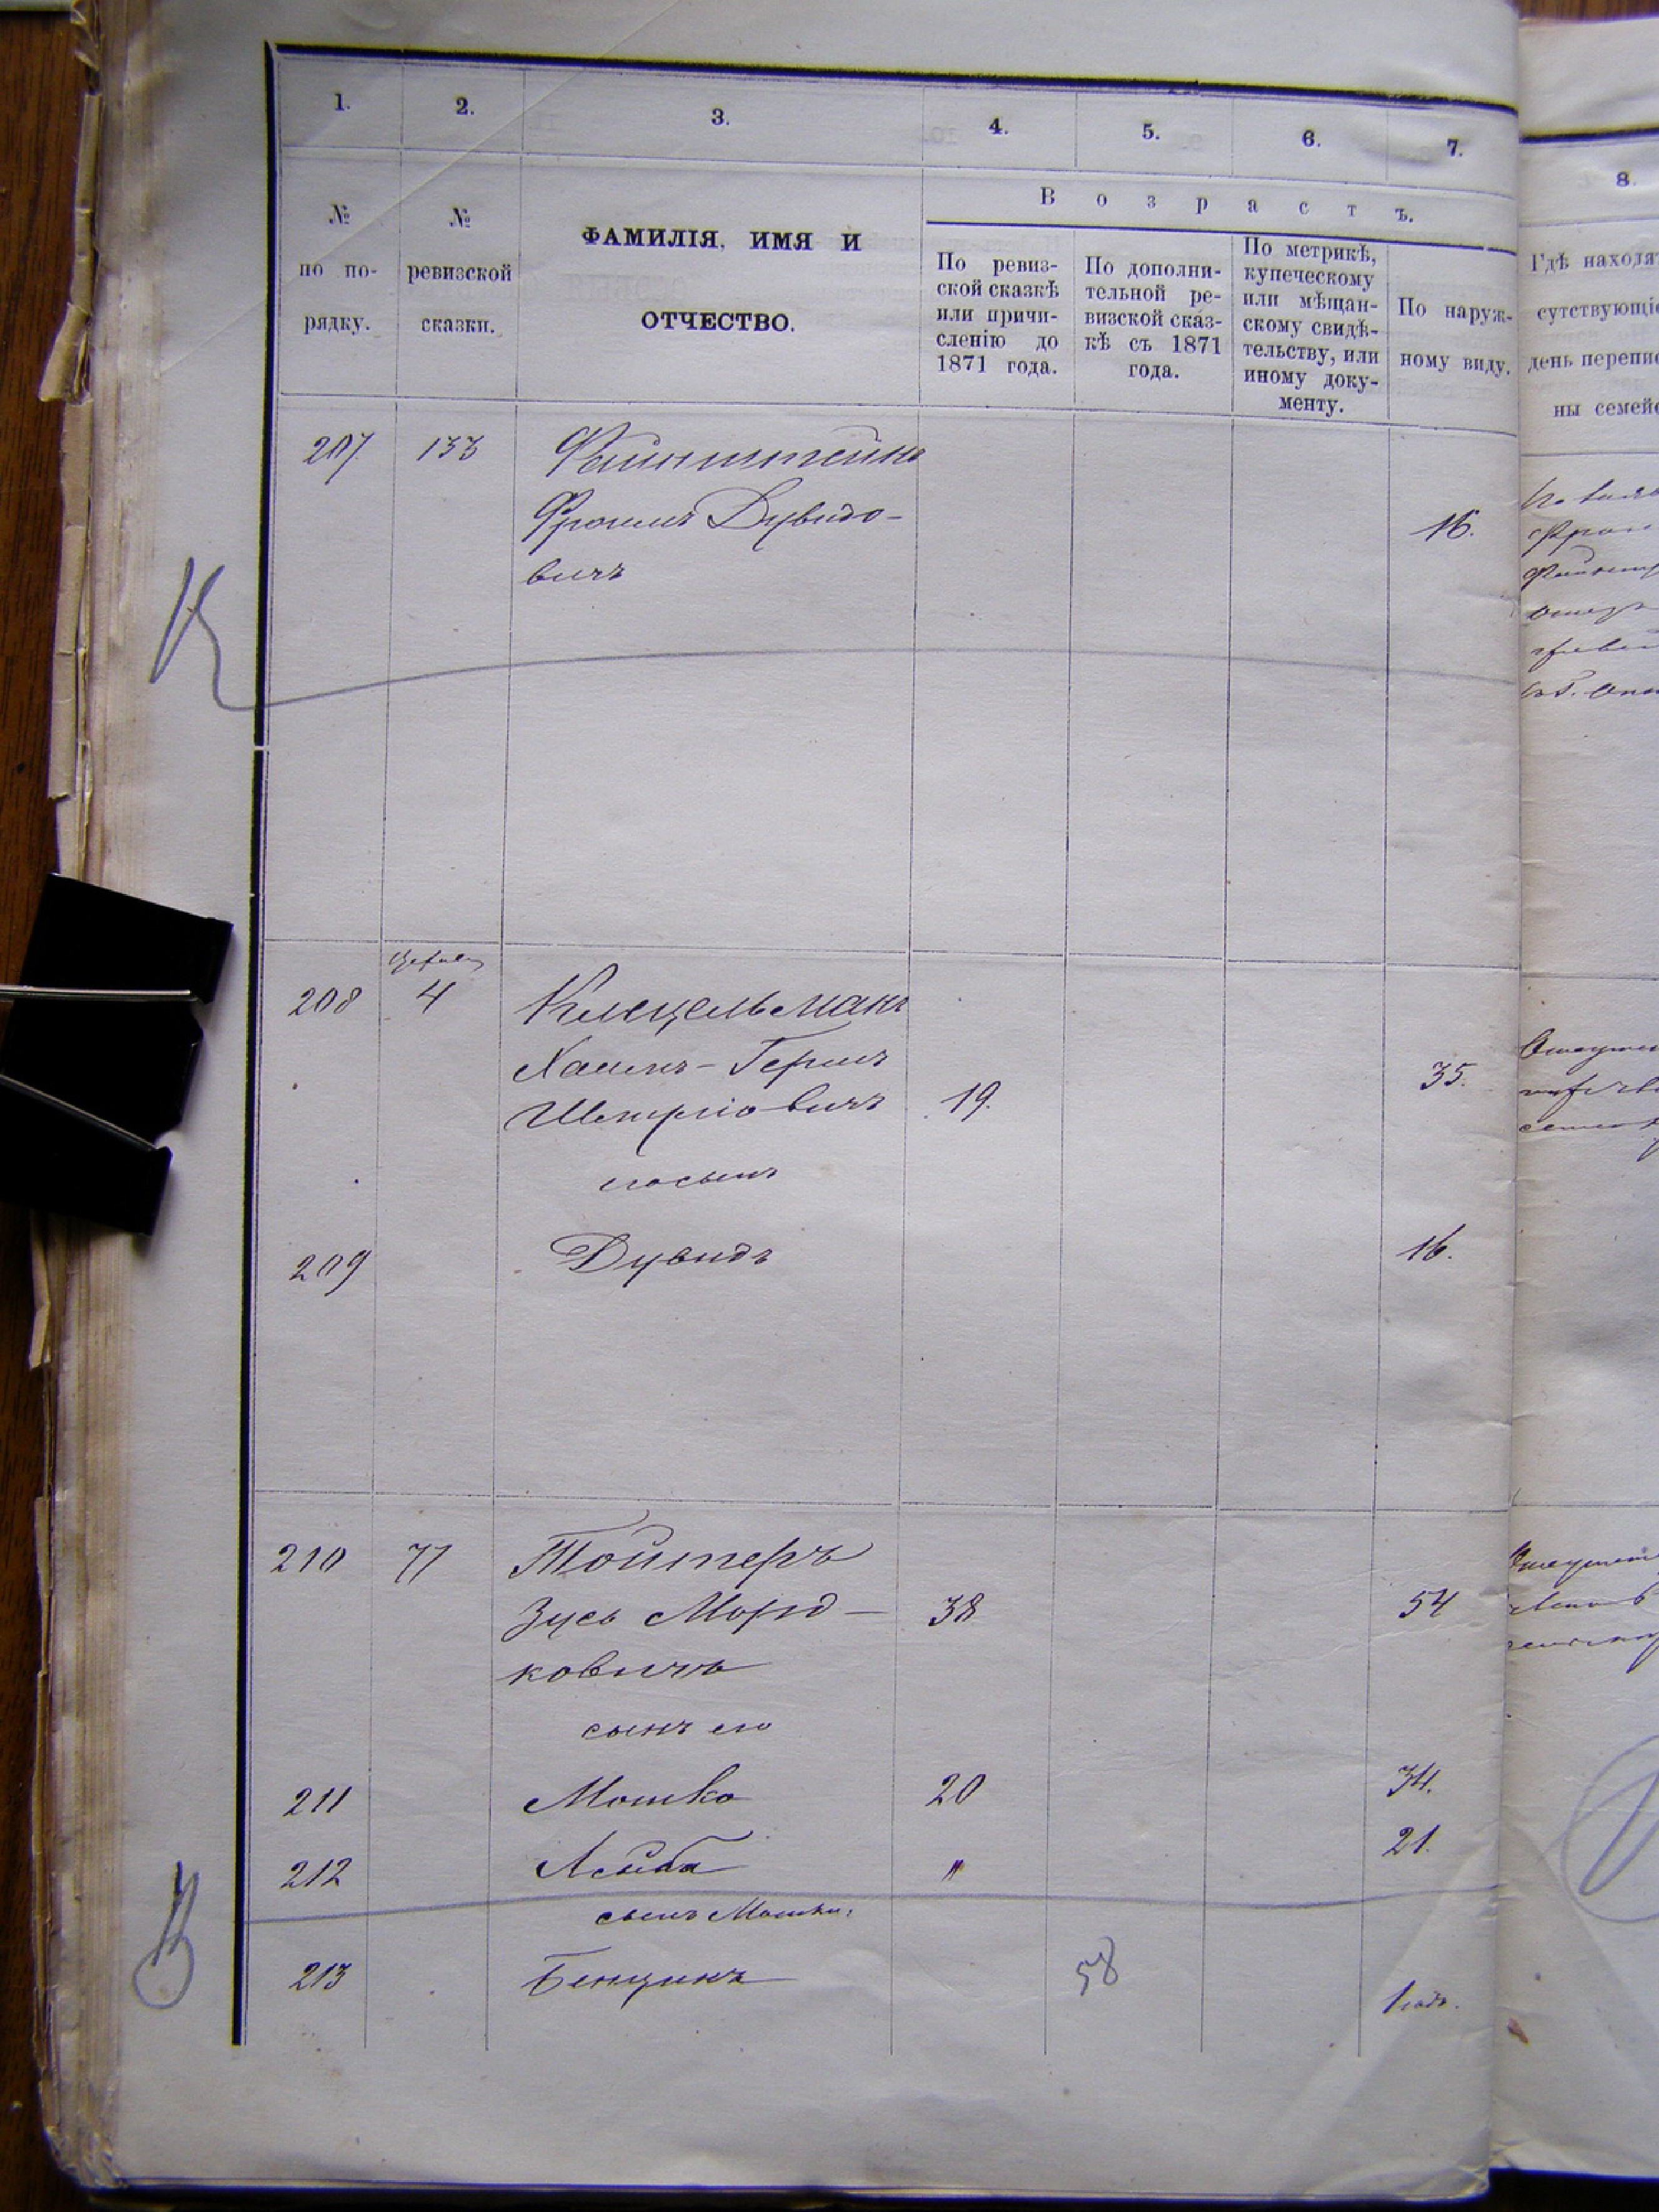 1. 2. 3. 4. 5. 6. 7.
8.
№ по по-
рядку.
№ ревизской
сказки.
ФАМИЛІЯ, ИМЯ И
ОТЧЕСТВО.
Возрастъ.
По ревиз-
ской сказкѣ
или причи-
сленію до
1871 года.
По дополни-
тельной ре-
визской сказ-
кѣ съ 1871
года.
По метрикѣ,
купеческому
или мѣщан-
скому свидѣ-
тельству, или
иному доку-
менту.
По наруж-
ному виду.
Гдѣ находят
сутствующіе
день перепис
ны семейс
207 133 Файнштейнъ
Фроимъ Дувидо- 16.
вичъ
208 4
Хаимъ-Гершъ 35.
19.
его сынъ
209 Дувидъ 16.
210 77 Тойтеръ
Зусь Морд- 38 54
ковичъ
сынъ его
211 Мошко 20 34.
212 Лейба " 21.
сынъ Мошки:
213 Бенціонъ 58 1 годъ.